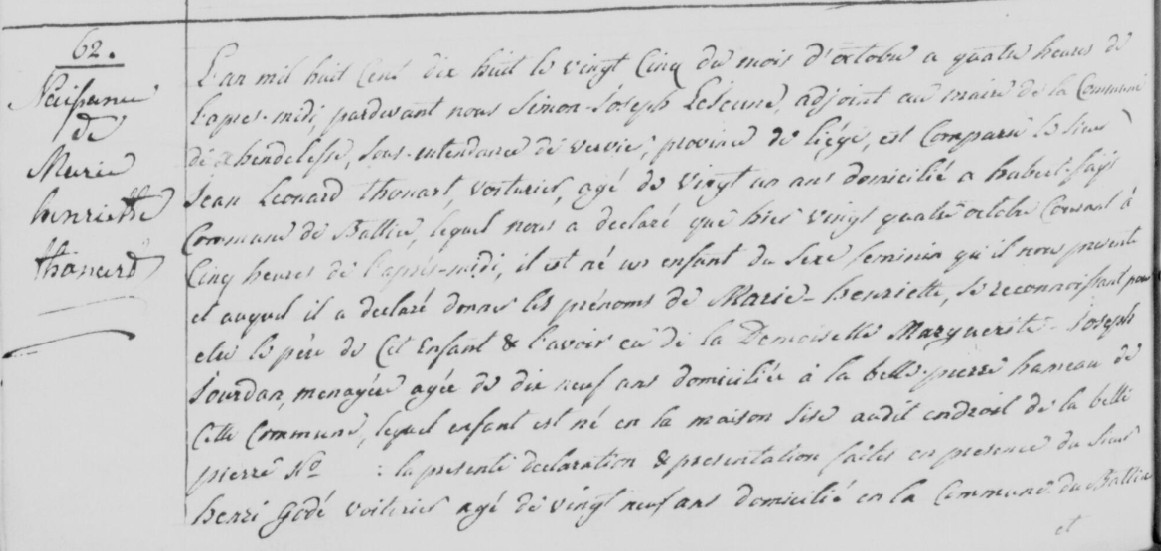 62.
Naissance
de
Marie
henriette
thonard
L'an mil huit Cent dix huit le vingt Cinq du mois d'octobre a quatre heures de
l'apres-midi, pardevant nous Simon-Joseph LeJeune, adjoint au maire de la Commune
de chendelesse, sous-intendance de vervie, province de liége, est Comparu le sieur
Jean Leonard thonart, voiturier, agé de vingt un ans domicilié a hubert-fays
Commune de Battice, lequel nous a declaré que hier vingt quatre octobre Courant à
Cinq heures de l'après-midi, il est né un enfant du sexe feminin qu'il nous presente
et auquel il a declaré donner les prénoms de Marie-henriette, se reconnoissant pour
etre le père de Cet Enfant & l'avoir eü de la Demoiselle Marguerite-Joseph
Jourdan, menagée agée de dix neuf ans domiciliée à la belle-pierre hameau de
Cette Commune, lequel enfant est né en sa maison sise audit endroit de la belle
pierre No : la presente declaration & presentation faites en presence du sieur
henri Godé voiturier agé de vingt neuf ans domicilié en la Commune du Battice
et